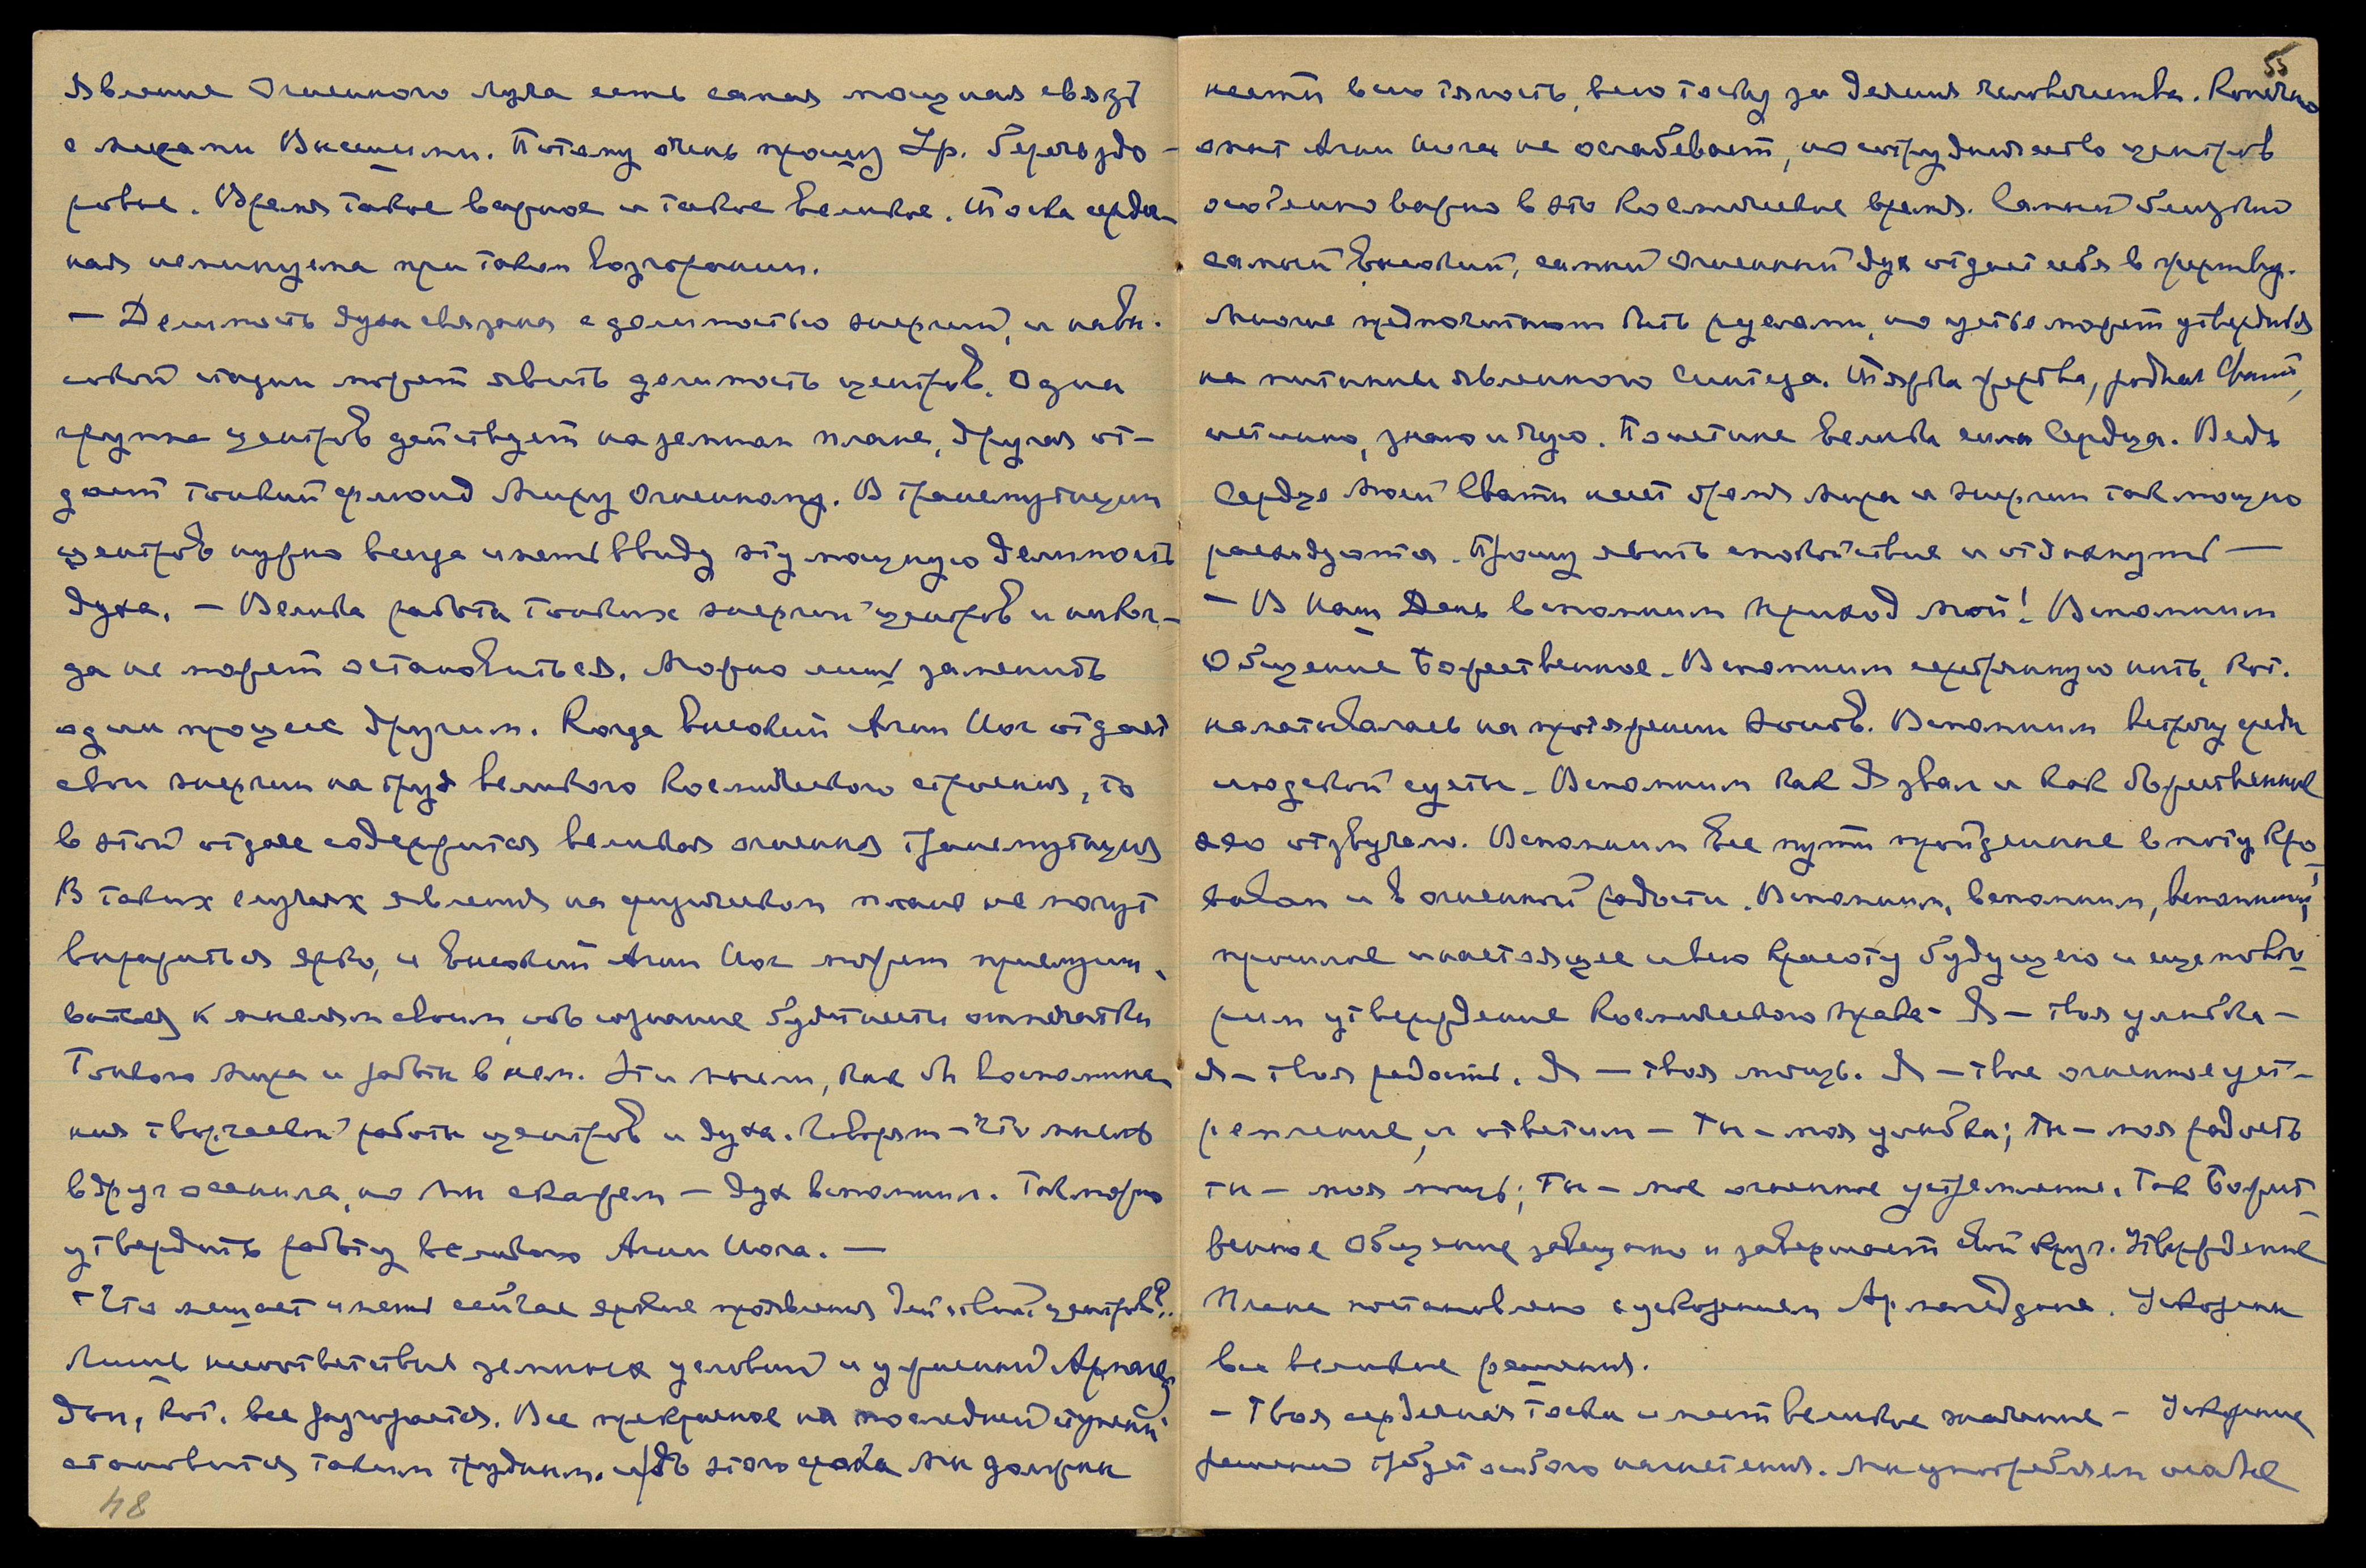 явление Огненного луча есть самая мощная связь
с мирами Высшими. Потому очень прошу Ур. беречь здо-
ровье. Время такое важное и такое великое. Тоска сердеч-
ная неминуема при таком возгорании.
— Делимость духа связана с делимостью энергий, и на вы-
сокой стадии может явить делимость центров. Одна
группа центров действует на земном плане, другая от-
дает тонкий флюид Миру Огненному. В трансмутации
центров нужно всегда иметь ввиду эту мощную делимость
духа. — Велика работа тонких энергий центров и никог-
да не может остановиться. Можно лишь заменить
один процесс другим. Когда высокий Агни Йог отдает
свои энергии на труд великого Космического строения, то
в этой отдаче содержится великая огненная трансмутация
В таких случаях явления на физическом плане не могут
выразиться ярко, и высокий Агни Йог может прислуши-
ваться к мыслям своим, ибо сознание будет нести отпечатки
Тонкого мира и работы в нем. Эти мысли, как бы воспомина-
ния творческой работы центров и духа. Говорят — что мысль
вдруг осенила, но мы скажем — дух вспомнил. Так можно
утвердить работу великого Агни Йога. —
— Что мешает иметь сейчас яркие проявления действий центров?.
Лишь несоответствие земных условий и ужасный Армагед-
дон, кот. все разгорается. Все прекрасное на последней ступени
становится таким трудным. Ждь этого срока мы должны
48
55
нести всю тягость, всю тоску за деяния человечества. Конечно
опыт Агни Йоги не ослабевает, но сотрудничество центров
особенно важно в это Космическое время. Самый близкий
самый высокий, самый огненный дух отдает себя в жертву.
Многие предпочитают быть ручьями, но устье может утвердиться
на питании явленного синтеза. Тяжка жертва, родная Свати,
истинно, знаю и чую. Поистине велика сила Сердца. Ведь
Сердце моей Свати несет бремя мира и энергии так мощно
расходуются. Прошу явить спокойствие и отдохнуть —
— В Наш День вспомним приход мой! Вспомним
Общение Божественное. Вспомним серебряную нить, кот.
наматывалась на протяжении Эонов. Вспомним встречу среди
людской суеты. Вспомним как Я звал и как божественное
эхо отзвучало. Вспомним все пути пройденные в поту кро-
вавом и в огненной радости. Вспомним, вспомним, вспомним,
прошлое и настоящее и всю красоту будущего и еще повто-
рим утверждение Космического Права — Я — твоя улыбка —
Я — твоя радость. Я — твоя мощь. Я — твое огненное уст-
ремление, и ответим — Ты — моя улыбка; ты — моя радость
ты — моя мощь; ты — мое огненное устремление. Так Божест-
венное Общение завещано и завершает свой круг. Утверждение
Плана поставлено с ускорением Армагеддона. Ускорены
все великие решения.
— Твоя сердечная тоска имеет великое значение — Ускорение
решений требует особого нагнетения. Мы употребляем